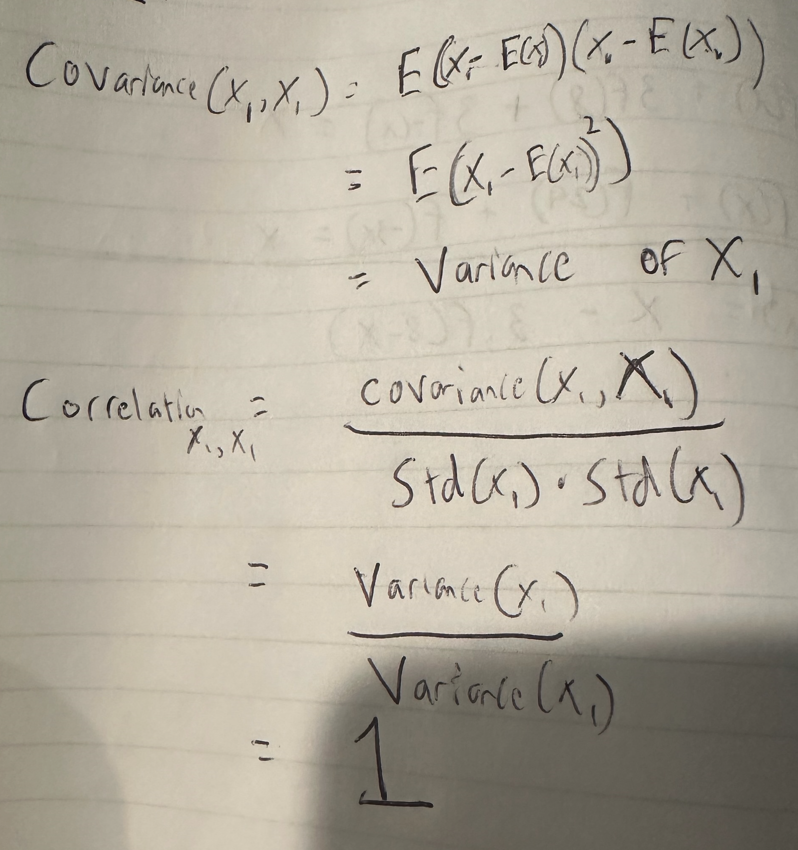 Covariance(X₁,X₁) = E(X₁- E(X))(X₁ - E(X₁))
= E(X₁ - E(X₁)²)
= Variance of X₁
Correlation X₁,X₁ = covariance(X₁,X₁)
Std(X₁) · Std(X₁)
= Variance(X₁)
Variance(X₁)
= 1